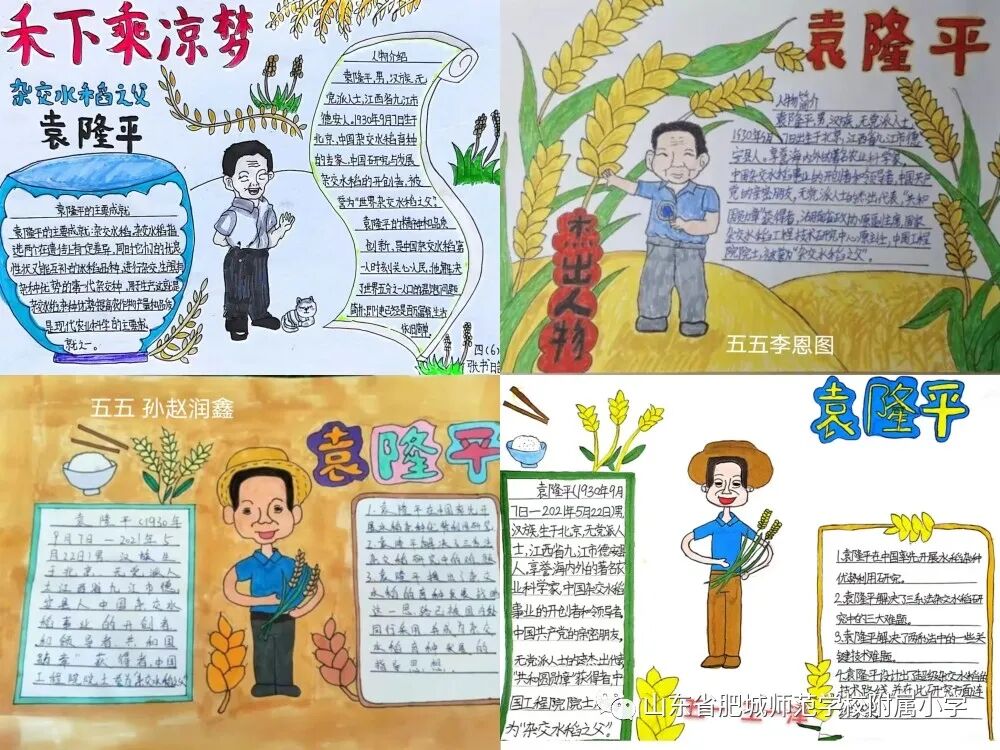 禾下乘凉梦
杂交水稻之父
袁隆平
人物介绍
袁隆平,男,汉族,无
党派人士,江西省九江市
德安人。1930年9月7日生于
北京,中国杂交水稻育种
的专家,中国研究与发展
杂交水稻的开创者,被
誉为“世界杂交水稻之父”。
袁隆平的精神和品质
创新,是中国杂交水稻第
一人时刻关心人民,他解决
了世界五分之一人口的温饱问题
四(6)
袁隆平的主要成就
袁隆平的主要成就:杂交水稻,杂交水稻指
选两个在遗传上有一定差异,同时它们的优良
性状又能互补的水稻品种,进行杂交,生产具有
杂种优势的第一代杂交种,用于生产这就是
杂交水稻杂种优势提高农作物产量和品质
是现代农业科学的主要成
就之一。
袁隆平
人物简介
袁隆平,男,汉族,无党派人士
1930年9月7日出生于北京,江西省九江市德
安县人。享誉海内外的著名农业科学家,
中国杂交水稻事业的开创者和领导者,中国共产
党的亲密朋友,无党派人士的杰出代表,“共和
国勋章”获得者,
杂交水稻工程技术研究中心原主任,中国工程
院院士,被誉为“杂交水稻之父”。
杰出人物
五五李恩图
五五 孙赵润鑫
袁隆平
袁隆平(1930年
9月7日—2021年5
月22日)男 汉族 生
于北京,无党派人
士江西省九江市德
安县人 中国杂交水
稻事业的开创者
和领导者 共和国
勋章”获得者中国
工程院院士 誉为杂交水稻之父
1.袁隆平在中国率先开
展水稻杂种优势利用研究。
袁隆平
袁隆平(1930年9月
7日—2021年5月22日)男
汉族,生于北京,无党派人
士,江西省九江市德安县
人,享誉海内外的著名农
业科学家,中国杂交水稻
事业的开创者和领导者,
中国共产党的亲密朋友,
无党派人士的杰出代表
“共和国勋章”获得者,中
国工程院院士
为“杂交水稻之父”
1.袁隆平在中国率先开展水稻杂种
优势利用研究。
2.袁隆平解决了三系法杂交水稻研
究中的三大难题。
3.袁隆平解决了两系法中的一些关
键技术难题。
4.袁隆平设计出了超级杂交水稻的
技术路线,并在此研究方面连
山东省肥城师范学校附属小学